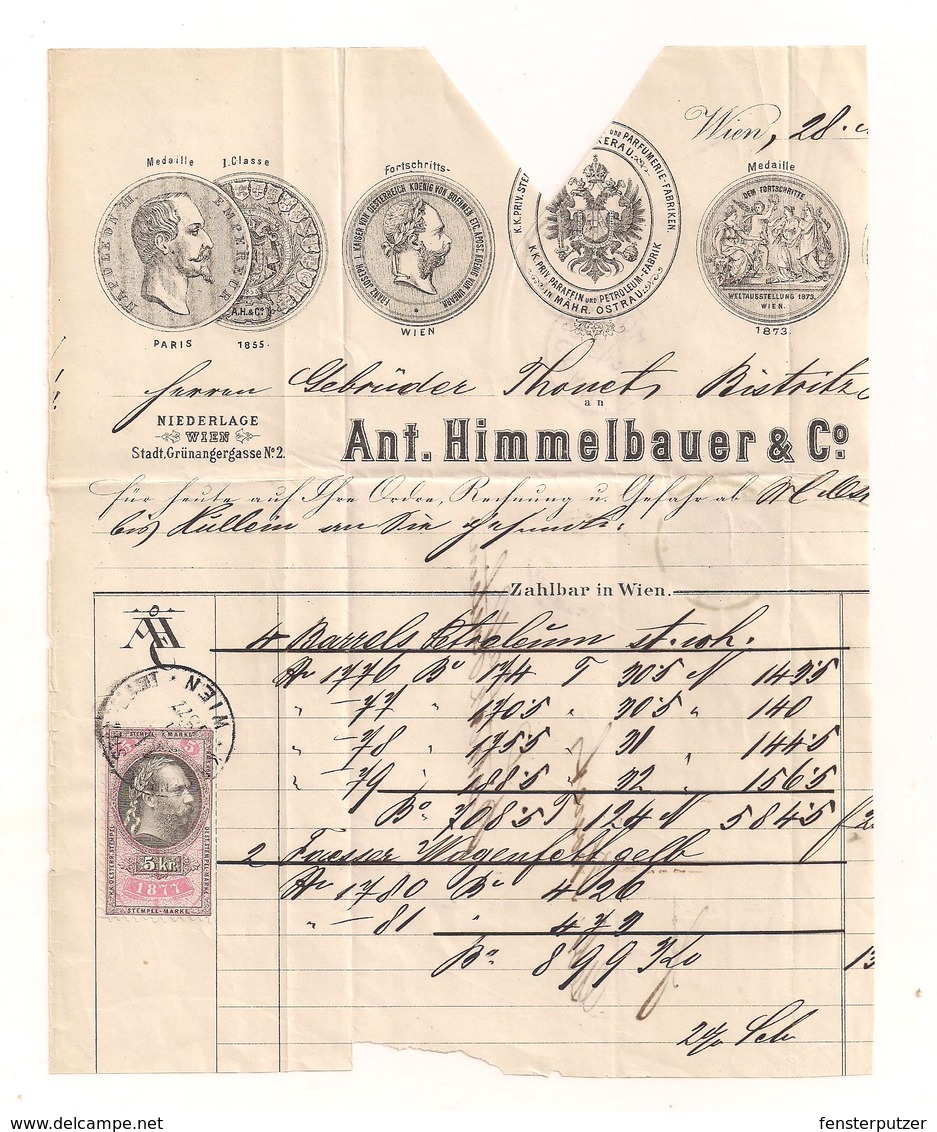 Wien, 28.
Medaille I. Classe
Fortschritts-
Medaille
NAPOLEON III. EMPEREUR
A.H.& Co.
FRANZ JOSEPH I. KAISER VON OESTERREICH KOENIG VON BOEHMEN ETC. APOST. KOENIG VON UNGARN
UND PARFUMERIE-FABRIKEN.
K.K. PRIV. STEA
K.K. PRIV. PARAFFIN UND PETROLEUM-FABRIK
IN MÄHR. OSTRAU.
DEM FORTSCHRITTE
WELTAUSSTELLUNG 1873.
WIEN.
PARIS 1855.
WIEN
1873.
Herren Gebrüder Thonet, Bistritz
an
NIEDERLAGE
WIEN
Stadt, Grünangergasse No. 2.
Ant. Himmelbauer & Co.
Für heute auf Ihre Ordre, Rechnung u. Gefahr ab
bis Hullein an Sie gesandte:
Zahlbar in Wien.
4 Barrels Petroleum
No 1776 Bo 174 T 30·5 N 143·5
" -77 " 170·5 " 30·5 " 140
" -78 " 175·5 " 31 " 144·5
" -79 " 188·5 " 32 " 156·5
Bo 708·5 T 124 N 584·5 f
2 Faesser Wagenfett gelb
No 1780 Bo 426
" -81 " 473
Bo 899 Ko 13
WIEN
STEMPEL-MARKE
5 5
5 kr.
1877
STEMPEL-MARKE
www.delcampe.net
fensterputzer